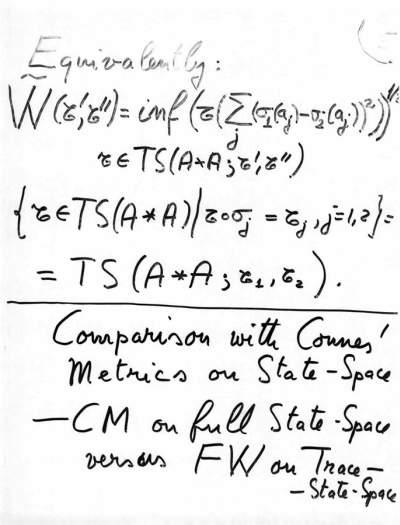 Equivalently:
W(τ',τ'') = inf (τ(∑_j (σ_1(a_j) – σ_2(a_j))^2))^{1/2}
τ ∈ TS(A*A; τ', τ'')
{τ ∈ TS(A*A) | τ∘σ_j = τ_j, j=1,2} =
= TS(A*A; τ_1, τ_2).
Comparison with Connes'
Metrics on State-Space
— CM on full State-Space
versus FW on Trace-
-State-Space